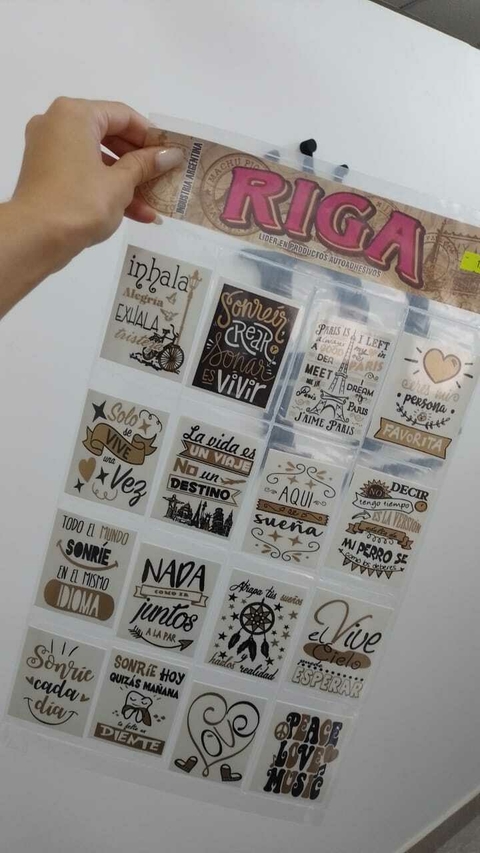 INDUSTRIA ARGENTINA
MACHU
RIGA
LIDER EN PRODUCTOS AUTOADHESIVOS
inhala
Alegria
EXHALA
tristeza
Sonreir
CREAR
Soñar
ES
Vivir
PARIS IS
I LEFT
in
PARIS
MEET
DREAM
Paris
PARIS
J'AIME PARIS
persona
FAVORITA
Solo
se
VIVE
una
Vez
La vida es
UN VIAJE
No un
DESTINO
AQUI
se
sueña
NO
DECIR
tengo tiempo
ES LA VERSION
MI PERRO SE
comio los deberes
TODO EL MUNDO
SONRÍE
EN EL MISMO
IDIOMA
NADA
como ir
juntos
A LA PAR
Atrapa tus sueños
y
hazlos realidad
Vive
el
Cielo
puede
ESPERAR
Sonríe
cada
día
SONRÍE HOY
QUIZÁS MAÑANA
te falte un
DIENTE
LOVE
PEACE
LOVE
MUSIC